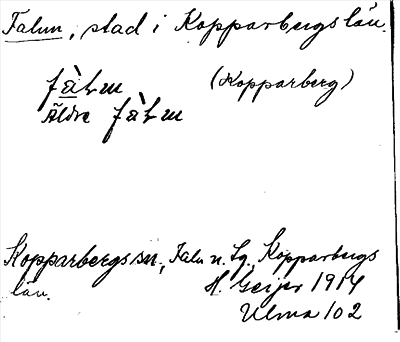 Falun, stad i Kopparbergs län.
fàtm (Kopparberg)
Äldre fàtm
Kopparbergs sn, Falu n. tg, Kopparbergs
län. H. Geijer 1914
Ulma 102